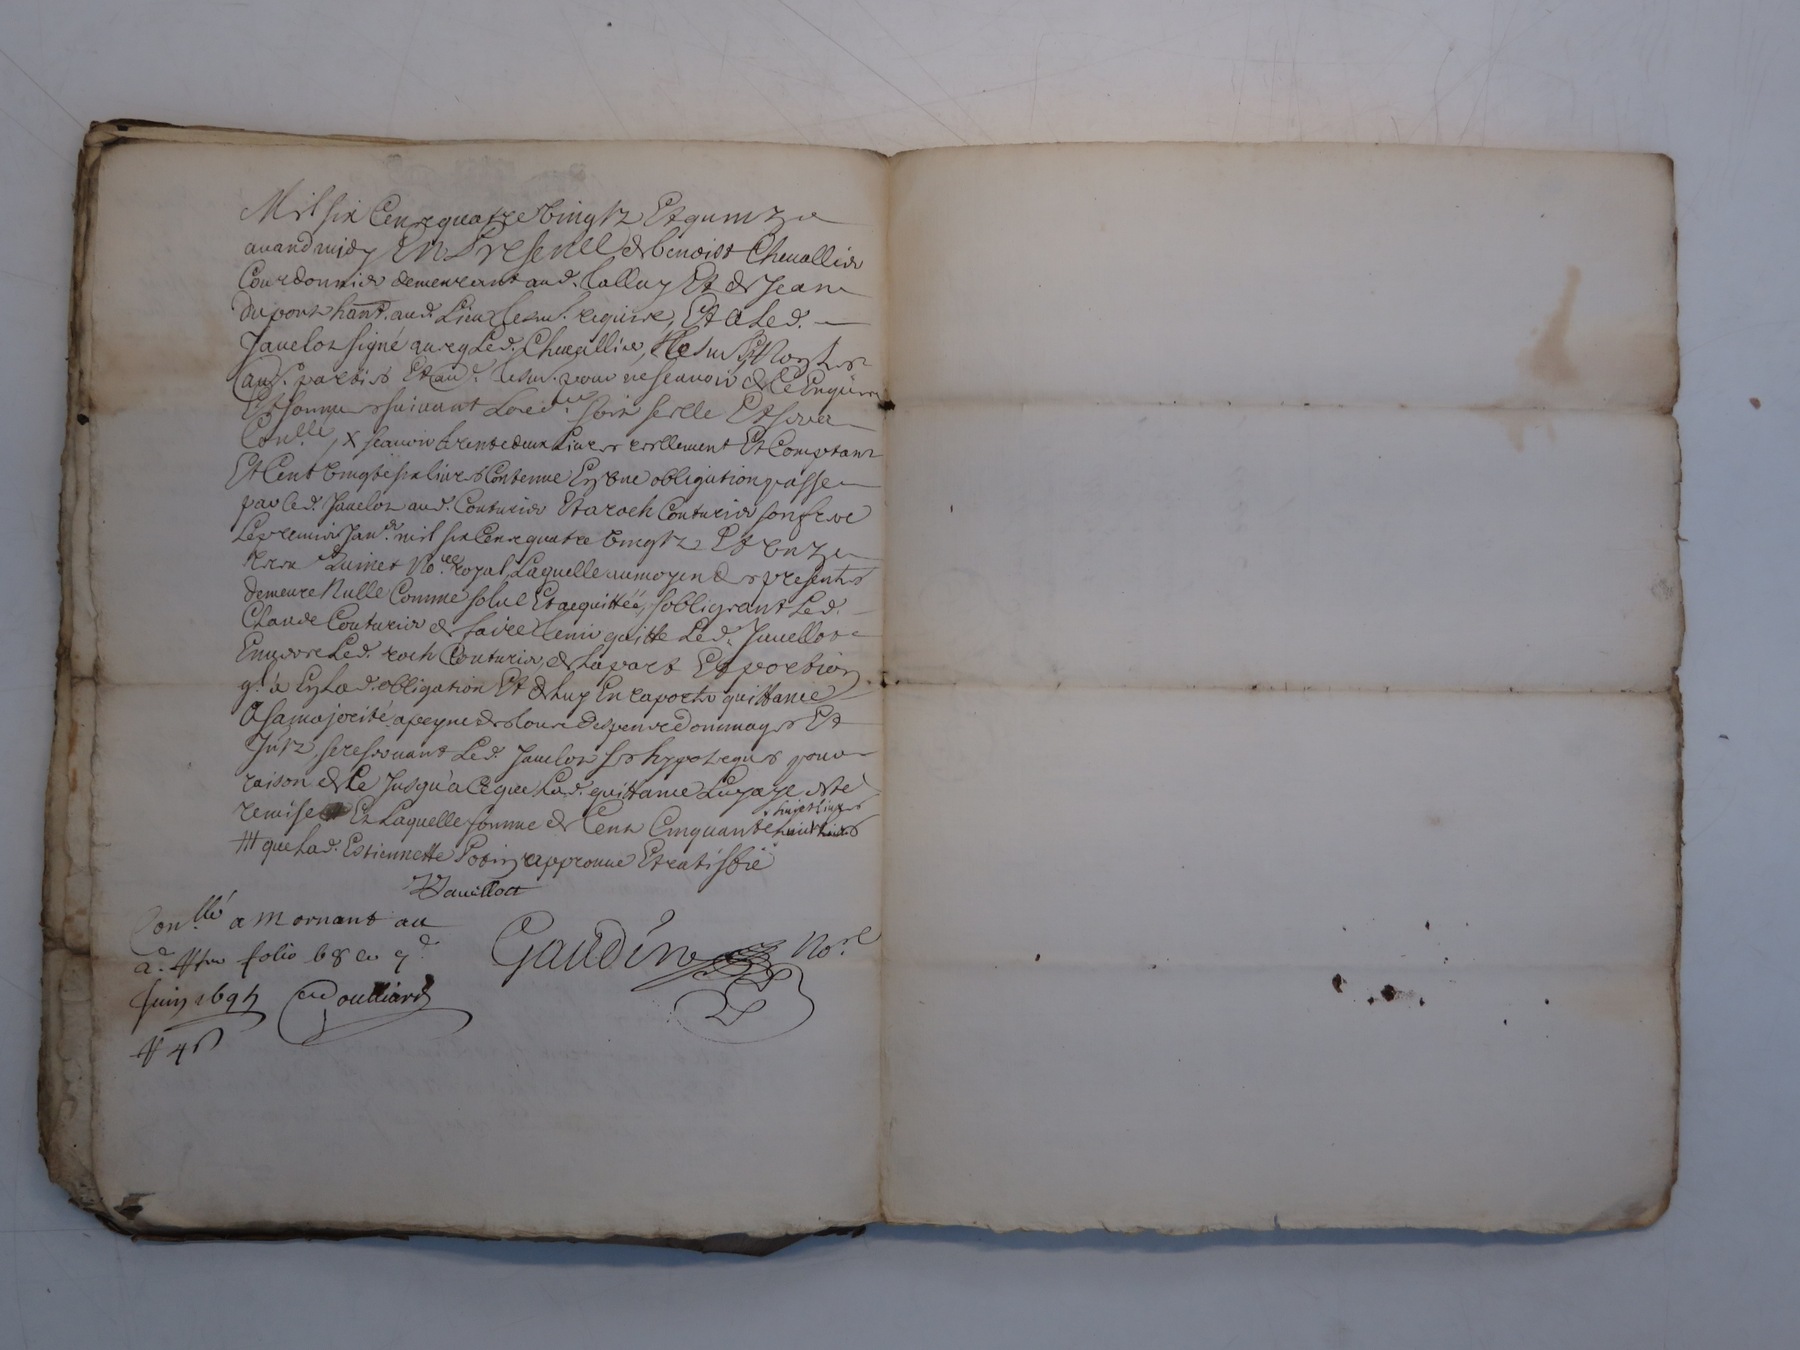 Mil six Cens quatre vingtz Et quinze
auand midy En Presence de benoist Cheuallier
Courdonnier demeurant aud. Talluy Et de Jean
dupont hant. aud. Lieu tesm. requis, Et a Led.
Jauelot signé auecq Led. Cheuallier,
aud. parties Et aud. tesm. pour ne scauoir de Ce Enquis
Et sommes suiuant Lord.ce sera
Con.llé, X scauoir trente deux Liures reellement Et Comptant
Et Cent vingt six liures Contenue En une obligation passee
par led. Jauelot aud. Couturier Et a roch Couturier son frere
Le premier Jan.er mil six Cens quatre vingtz Et unze
No.re royal, Laquelle au moyen des presentes
demeure Nulle Comme solue Et acquittée, s'obligeant Led.
Claude Couturier de faire tenir quitte Led. Jauellot
Enuers Led. roch Couturier, de La part Et portion
q.l a En Lad. obligation Et de luy En raporter quittance
A sa majorité a peyne de tous despens dommages Et
Jntz. se reseruant Led. Jauelot ses hypoteques pour
raison de Ce Jusqu'a Ce que Lad. quittance Luy aye esté
remise Et Laquelle somme de Cent Cinquante huict liures
que Lad. Estiennette Potin approuue Et ratiffie
Con.llé a Mornant au
folio 68 le 9.e
Juin 1695
Gaudin No.re